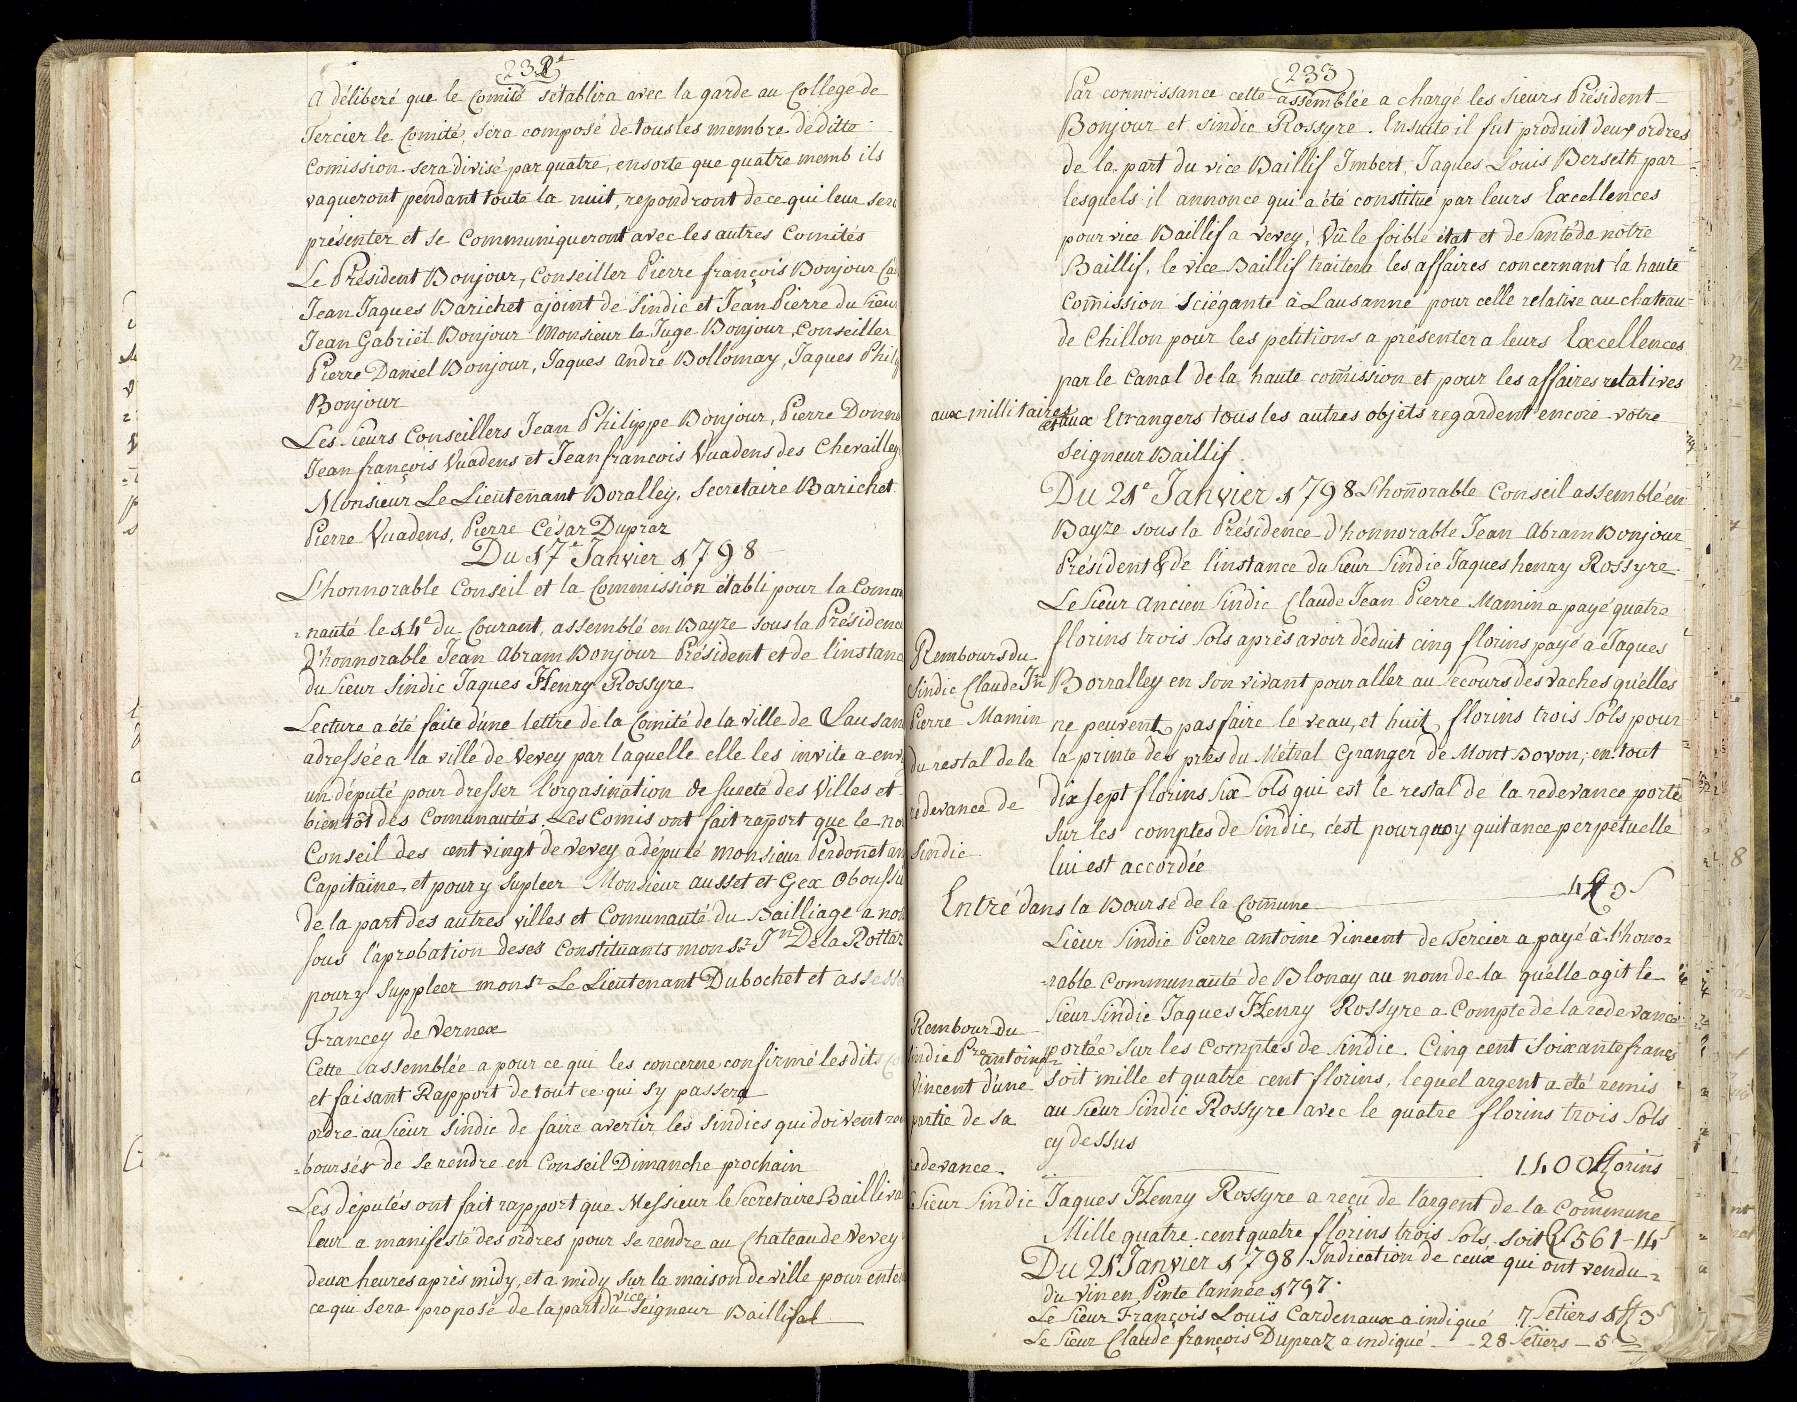 232
A déliberé que le Comité s'établira avec la garde au College de
Tercier le Comité, sera composé de tous les membre de ditte
Comission sera divisé par quatre, ensorte que quatre memb ils
vaqueront pendant toute la nuit, repondront de ce qui leur sera
présenter et se Communiqueront avec les autres Comités
Le Président Bonjour, Conseiller Pierre françois Bonjour
Jean Jaques Barichet ajoint de Sindic et Jean Pierre du Sieur
Jean Gabriël Bonjour Monsieur le Juge Bonjour, Conseiller
Pierre Daniel Bonjour, Jaques andré Bollomay, Jaques Phil
Bonjour
Les Sieurs Conseillers Jean Philippe Bonjour, Pierre
Jean françois Vuadens et Jean francois Vuadens des Chevalley
Monsieur Le Lieutenant Boralley, Secretaire Barichet
Pierre Vuadens, Pierre César Dupraz
Du 17e Janvier 1798
L'honnorable Conseil et la Commission établi pour la Comm
nauté le 14e du Courant, assemblé en Bayze sous la Présidence
d'honnorable Jean Abram Bonjour Président et de l'instanc
du Sieur Sindic Jaques Henry Rossyre
Lecture a été faite d'une lettre de la Comité de la ville de Lausan
adressée a la ville de Vevey par laquelle elle les invite a env
un député pour dresser l'orgasination de sureté des Villes et
bientôt des Communautés, Les Comis ont fait rapport que le no
Conseil des cent vingt de Vevey a député Monsieur Perdonnet an
Capitaine, et pour y supleer Monsieur ausset et Gex Oboussi
de la part des autres villes et Comunauté du Bailliage a nom
sous l'aprobation de ses Constituants monsr Jn De la Rottaz
pour y suppleer monsr Le Lieutenant Dubochet et assesse
Francey de Vernex
Cette assemblée a pour ce qui les concerne confirmé les dits
et faisant Rapport de tout ce qui s'y passera
ordre au Sieur Sindic de faire avertir les Sindics qui doivent rem
boursér de se rendre en Conseil Dimanche prochain
Les députés ont fait rapport que Messieur le Secretaire Bailliva
leur a manifesté des ordres pour se rendre au Chateau de Vevey
deux heures après midy, et a midy sur la maison de ville pour enten
ce qui sera proposé de la part du vice Seigneur Baillifal
233
Par connoissance cette assemblée a chargé les Sieurs Président
Bonjour et Sindic Rossyre. Ensuite il fut produit deux ordres
de la part du vice Baillif Imbert, Jaques Louis Berseth par
lesquels il annonce qui a été constitué par leurs Excellences
pour vice Baillif a Vevey, Vû le foible état et de Santé de nôtre
Baillif, le vice Baillif traitera les affaires concernant la haute
Comission sciégante à Lausanne pour celle relative au chateau
de Chillon pour les petitions a présenter a leurs Excellences
par le Canal de la haute comission et pour les affaires relatives
aux millitaires et aux Etrangers tous les autres objets regardent encore votre
Seigneur Baillif.
Du 21e Janvier 1798 L'honnorable Conseil assemblé en
Bayze sous la Présidence d'honnorable Jean Abram Bonjour
Président & de l'instance du Sieur Sindic Jaques henry Rossyre
Remboursdu
Sindic Claude Jn
Pierre Mamin
du réstal de la
redevance de
Sindic
Le Sieur ancien Sindic Claude Jean Pierre Mamin a payé quatre
florins trois Sols après avoir déduit cinq florins payé a Jaques
Borralley en son vivant pour aller au Secours des vaches qu'elles
ne peuvent pas faire le veau, et huit florins trois Sols pour
la prime des prés du Métral Granger de Mont Bovon; en tout
dix sept florins Six Sols qui est le restal de la redevance porté
sur les comptes de Sindic, c'est pourquoy quitance perpetuelle
lui est accordée
Entré dans la Bourse de la Comune 4 fl 3 s
Rembour du
Sindic Pre antoine
Vincent d'une
partie de sa
redevance
Sieur Sindic Pierre antoine Vincent de Tercier a payé à l'hono=
rable Communauté de Blonay au nom de la quelle agit le
Sieur Sindic Jaques Henry Rossyre a Compte de la redevance
portée sur les Comptes de Sindic. Cinq cent Soixante francs
soit mille et quatre cent florins, lequel argent a été remis
au Sieur Sindic Rossyre avec le quatre florins trois Sols
cy dessus
1400 florins
Le Sieur Sindic Jaques Henry Rossyre a reçu de l'argent de la Commune
Mille quatre cent quatre florins trois Sols. Soit L 561-14 s
Du 21e Janvier 1798. Indication de ceux qui ont vendu
du vin en Pinte l'année 1797.
Le Sieur François Louïs Cardenaux a indiqué 7 Setiers 1 fl 3 s
Le Sieur Claude françois Dupraz a indiqué 28 Setiers 5